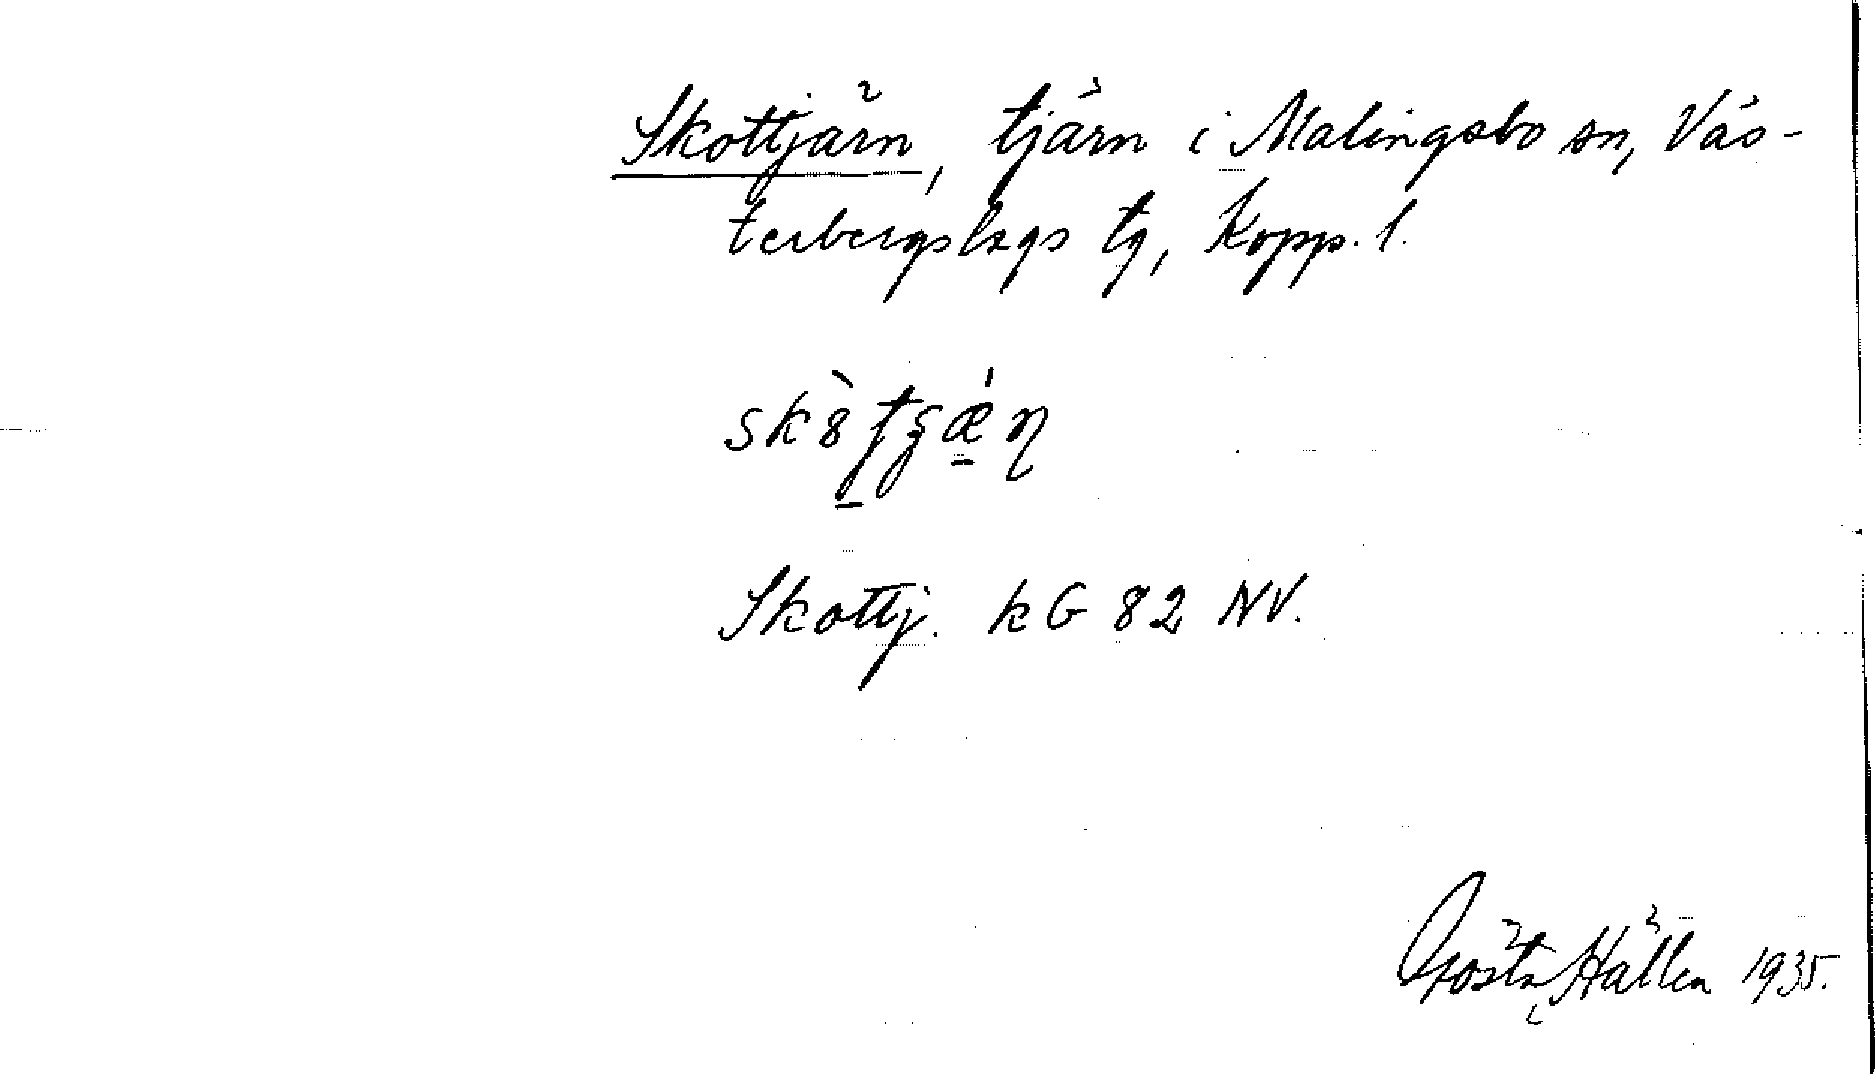 Skottjärn, tjärn i Malingsbo sn, Väs-
terbergslags tg, Kopp. l.
Skottj. kG 82 NV.
Gösta Hållen 1935.